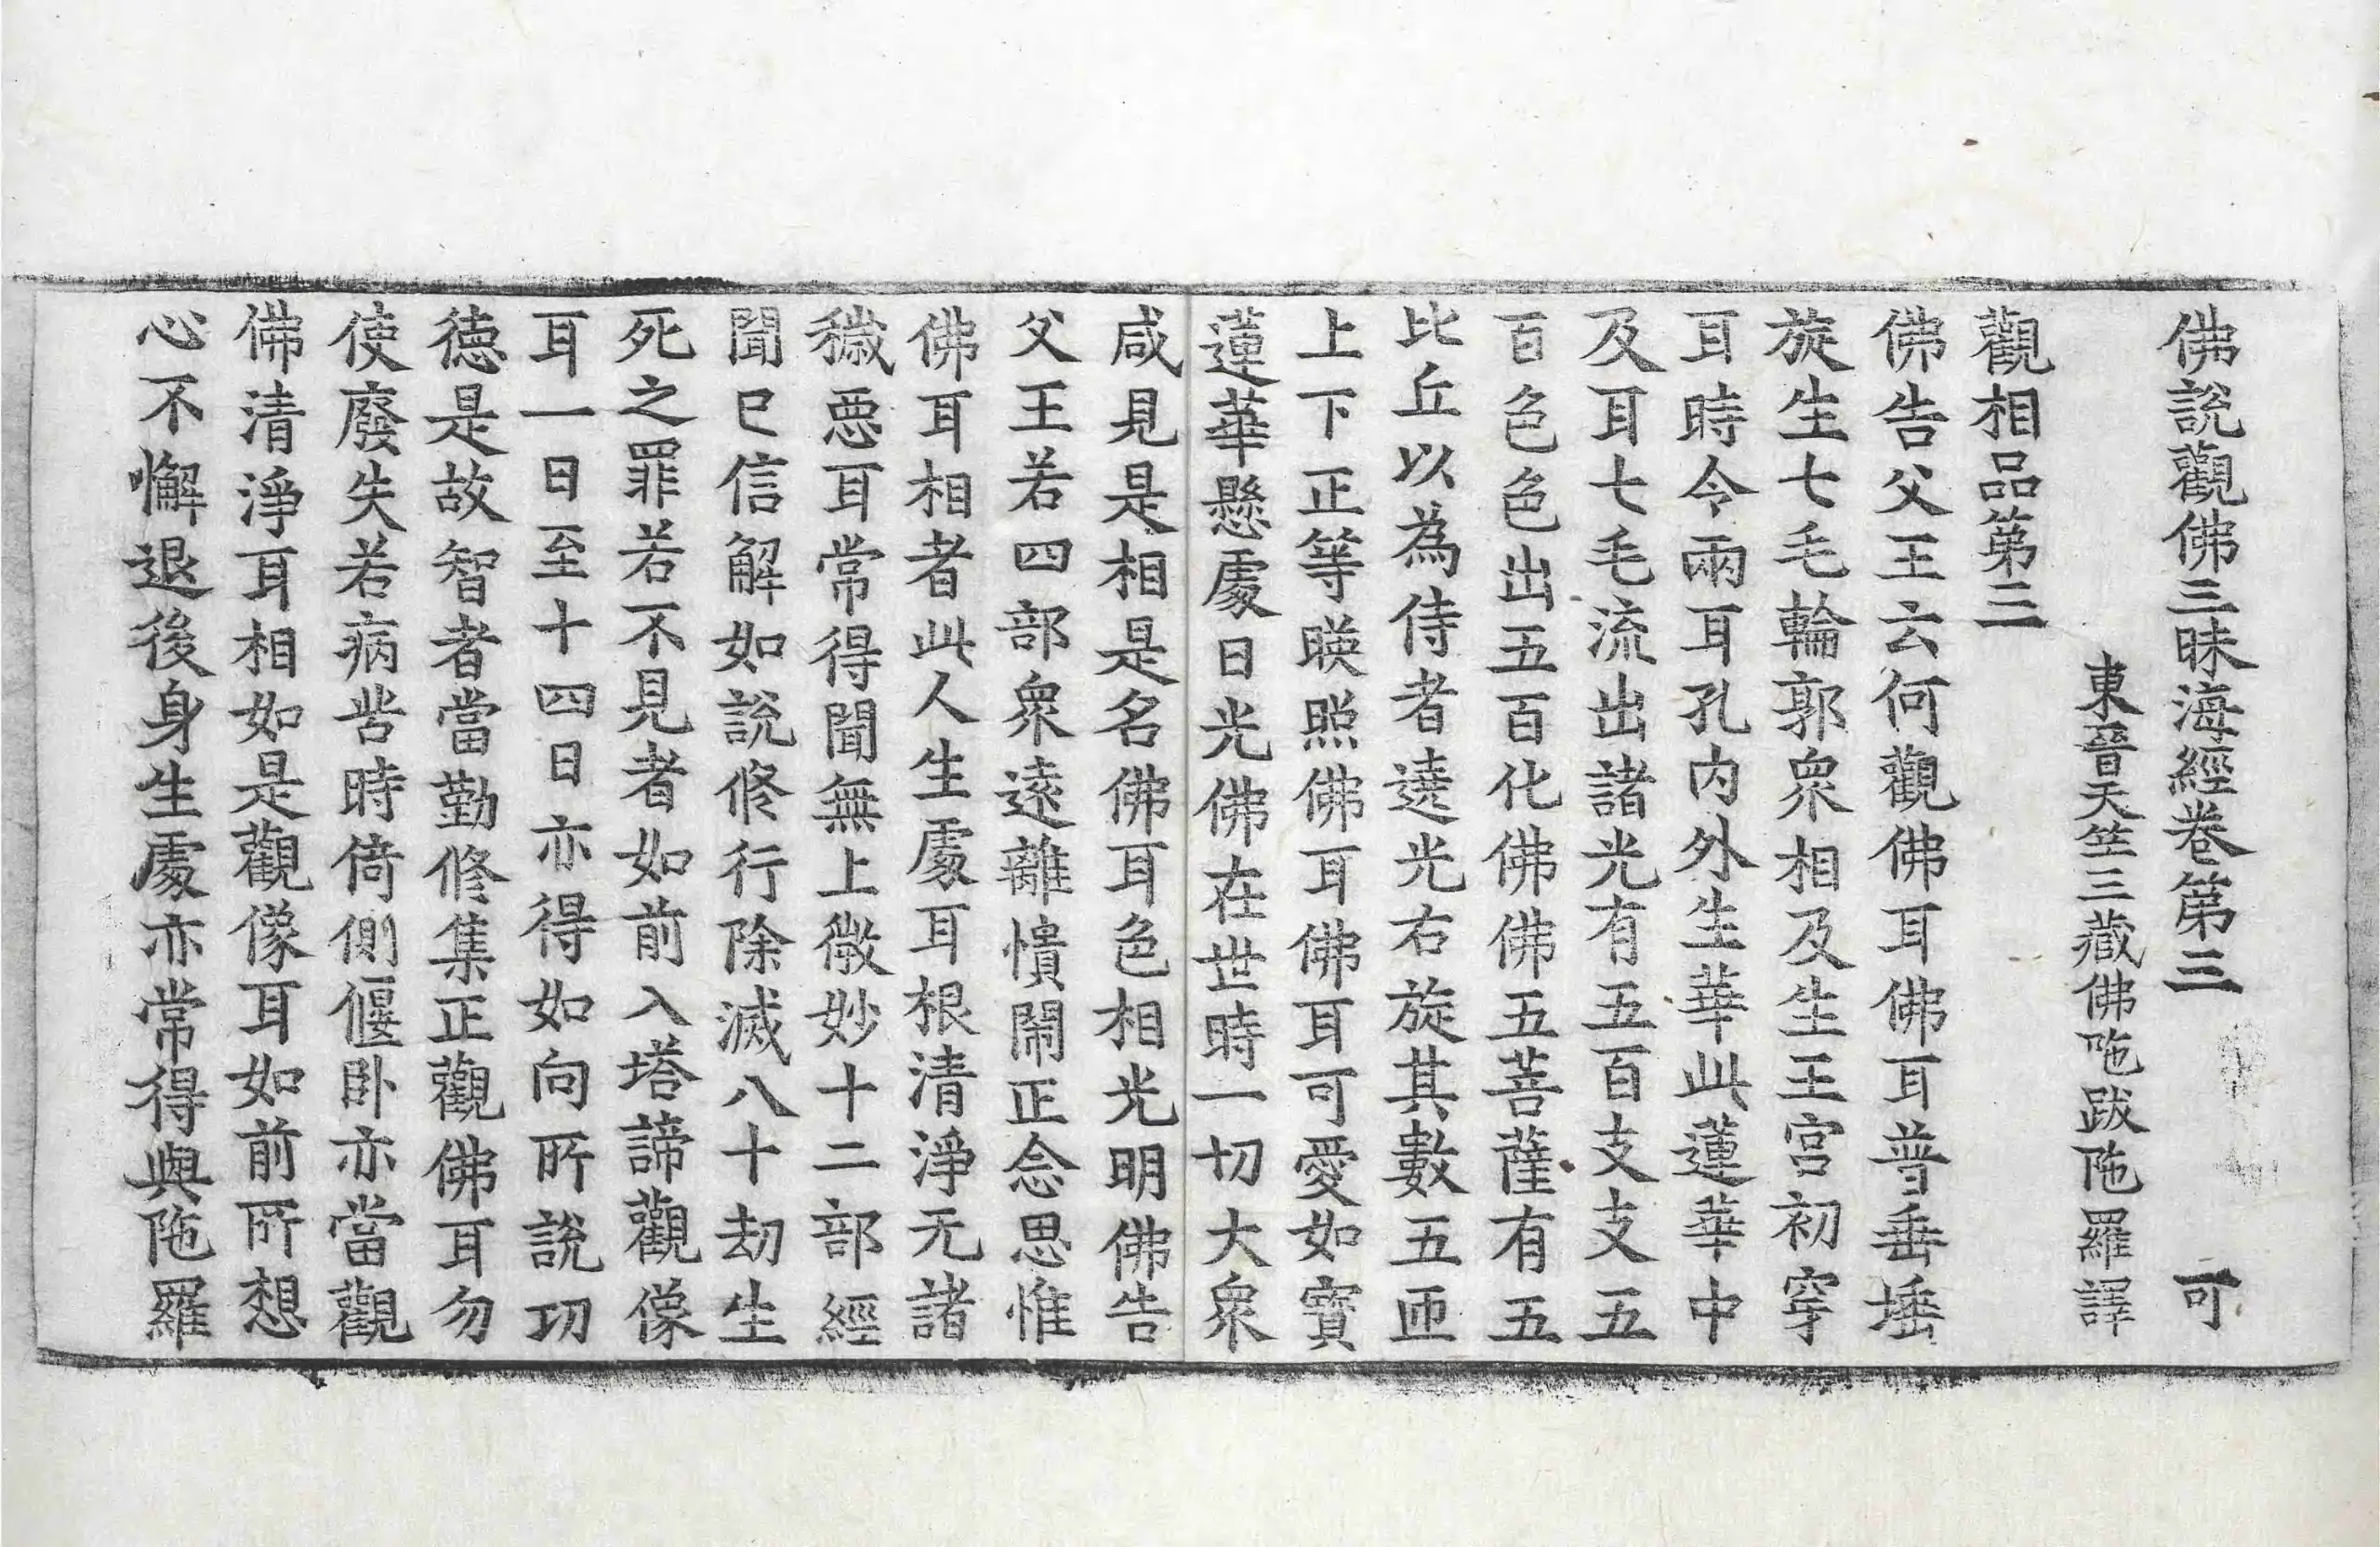 佛說觀佛三昧海經卷第三 可
東晉天竺三藏佛陁跋陁羅譯
觀相品第三
佛告父王云何觀佛耳佛耳普垂埵
旋生七毛輪郭衆相及生王宮初穿
耳時令兩耳孔內外生華此蓮華中
及耳七毛流出諸光有五百支支五
百色色出五百化佛佛五菩薩有五
比丘以為侍者遶光右旋其數五匝
上下正等暎照佛耳佛耳可愛如寶
蓮華懸處日光佛在世時一切大衆
咸見是相是名佛耳色相光明佛告
父王若四部衆遠離憒閙正念思惟
佛耳相者此人生處耳根清淨无諸
穢惡耳常得聞無上微妙十二部經
聞已信解如說修行除滅八十劫生
死之罪若不見者如前入塔諦觀像
耳一日至十四日亦得如向所說功
德是故智者當勤修集正觀佛耳勿
使廢失若病苦時倚側偃卧亦當觀
佛清淨耳相如是觀像耳如前所想
心不懈退後身生處亦常得與陁羅